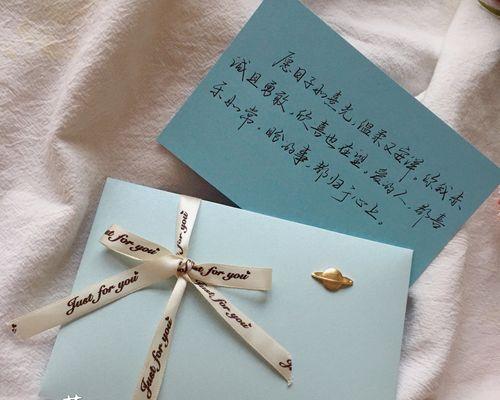 愿日子如熹光,温柔又安详,你我赤
诚且勇敢,欣喜也在望,爱的人,都喜
乐如常,盼的事,都归于心上。
Just for you
Just for you
Just for you
Just for you
Just for you